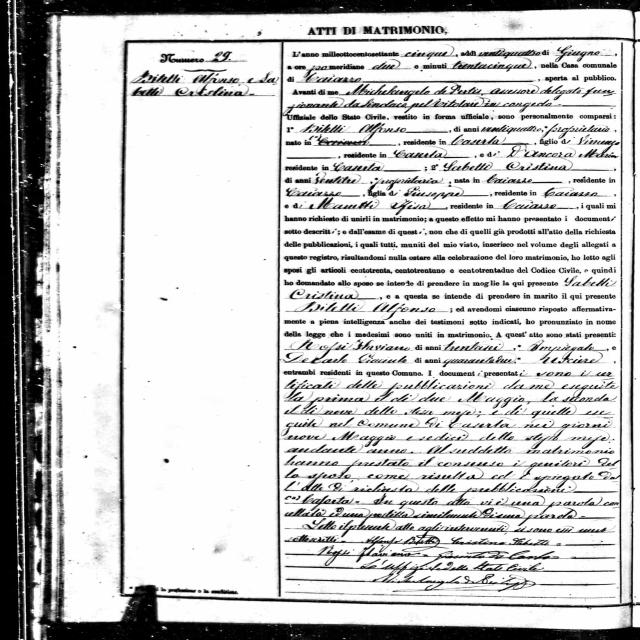 ATTI DI MATRIMONIO.
Numero 29.
Bitetti Alfonso e Sa
betti Cristina
L'anno milleottocentosettanta cinque, addì ventiquattro di Giugno
a ore po meridiane due e minuti trentacinque, nella Casa comunale
di Caiazzo, aperta al pubblico.
Avanti di me Michelangelo de assessore delegato fun
zionante da Sindaco pel in congedo
Uffiziale dello Stato Civile, vestito in forma uffiziale, sono personalmente comparsi:
1° Bitetti Alfonso, di anni ventiquattro, proprietario,
nato in, residente in Caserta, figlio di Vincenzo
, residente in Caserta, e di D'Ancora Maria
residente in Caserta; 2° Sabetti Cristina
di anni ventitre, proprietaria, nata in Caiazzo, residente in
Caiazzo, figlia di Giuseppe, residente in Caiazzo
e di residente in Caiazzo, i quali mi
hanno richiesto di unirli in matrimonio; a questo effetto mi hanno presentato i documenti
sotto descritti; e dall'esame di questi, non che di quelli già prodotti all'atto della richiesta
delle pubblicazioni, i quali tutti, muniti del mio visto, inserisco nel volume degli allegati a
questo registro, risultandomi nulla ostare alla celebrazione del loro matrimonio, ho letto agli
sposi gli articoli centotrenta, centotrentuno e centotrentadue del Codice Civile, e quindi
ho domandato allo sposo se intende di prendere in moglie la qui presente Sabetti
Cristina, e a questa se intende di prendere in marito il qui presente
Bitetti Alfonso; ed avendomi ciascuno risposto affermativa-
mente a piena intelligenza anche dei testimoni sotto indicati, ho pronunziato in nome
della legge che i medesimi sono uniti in matrimonio. A quest'atto sono stati presenti:
di anni trentasei, Impiegato, e
di anni quarantadue, Usciere,
entrambi residenti in questo Comune. I documenti presentati sono i cer
tificati delle pubblicazioni da me eseguite
la prima il dì due Maggio, la seconda
il dì nove dello stesso mese; e di quelle se
guite nel Comune di Caserta nei giorni
nove Maggio e sedici dello stesso mese,
andante anno. Al suddetto matrimonio
hanno prestato il consenso i genitori del
lo sposo, come risulta
l'atto di richiesta delle pubblicazioni.
Caserta. In questo atto vi è una parola can
cellata ed una postilla di una parola.
Letto il presente atto agli intervenuti,
Alfonso Bitetti Cristina Sabetti
L'Uffiziale dello Stato Civile